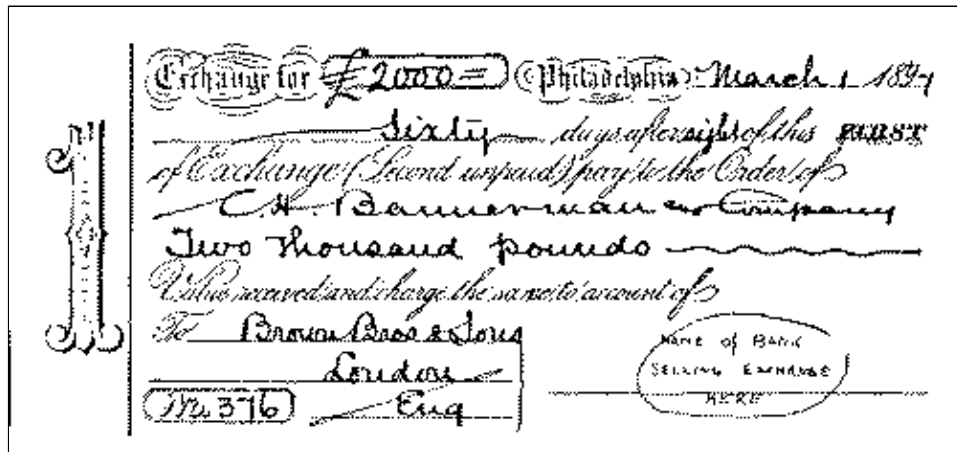 Exchange for £2000= Philadelphia March 1 1897
Sixty days after sight of this FIRST
of Exchange (Second unpaid) pay to the Order of
C. H. Bannerman and Company
Two thousand pounds
Value received and charge the same to account of
To Brown Bros & Sons
London
No 376 Eng
NAME OF BANK
SELLING EXCHANGE
HERE